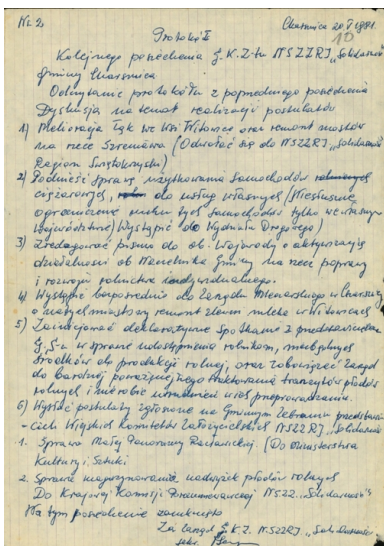 Nr. 2 Charsznica 20.V.1981.
10
Protokół
Kolejnego posiedzenia G.K.Z-tu NSZZRJ „Solidarność"
Gminy Charsznica
Odczytanie protokółu z poprzedniego posiedzenia
Dyskusja na temat realizacji postulatów
1) Melioracja łąk we wsi Witowice oraz remont mostów
na rzece Szreniawa (Odwołać się do NSZZRJ „Solidarność
Region Świętokrzyski)
2) Podnieść sprawę użytkowania samochodów
ciężarowych, do usług własnych (Niesłuszne
ograniczenie ruchu tych samochodów tylko we własnym
Województwie) Wystąpić do Wydziału Drogowego)
3) Zredagować pismo do ob. Wojewody o aktywizację
działalności ob Naczelnika Gminy na rzecz poprawy
i rozwoju rolnictwa indywidualnego.
4) Wystąpić bezpośrednio do Zarządu Mleczarskiego w Charsznicy
o natychmiastowy remont zlewni mleka w Witowicach
5) Zainicjować spotkanie z przedstawicielami
G.S-u w sprawie udostępnienia rolnikom, niezbędnych
środków do produkcji rolnej, oraz zobowiązać Zarząd
do bardziej poważnego traktowania tranzytów płodów
rolnych i nie robić utrudnień
6) Wysłać postulaty zgłoszone na Gminnym Zebraniu przedstawi-
-cieli Wiejskich Komitetów Założycielskich NSZZRJ „Solidarność"
1. Sprawa Małej Panoramy Racławickiej. (Do Ministerstwa
Kultury i Sztuki
2. Sprawa nadwyżek płodów rolnych
Do Krajowej Komisji Porozumiewawczej NSZZ „Solidarność")
Na tym posiedzenie zamknięto
Za Zarząd G.K.Z. NSZZRJ „Solidarność
sekr.